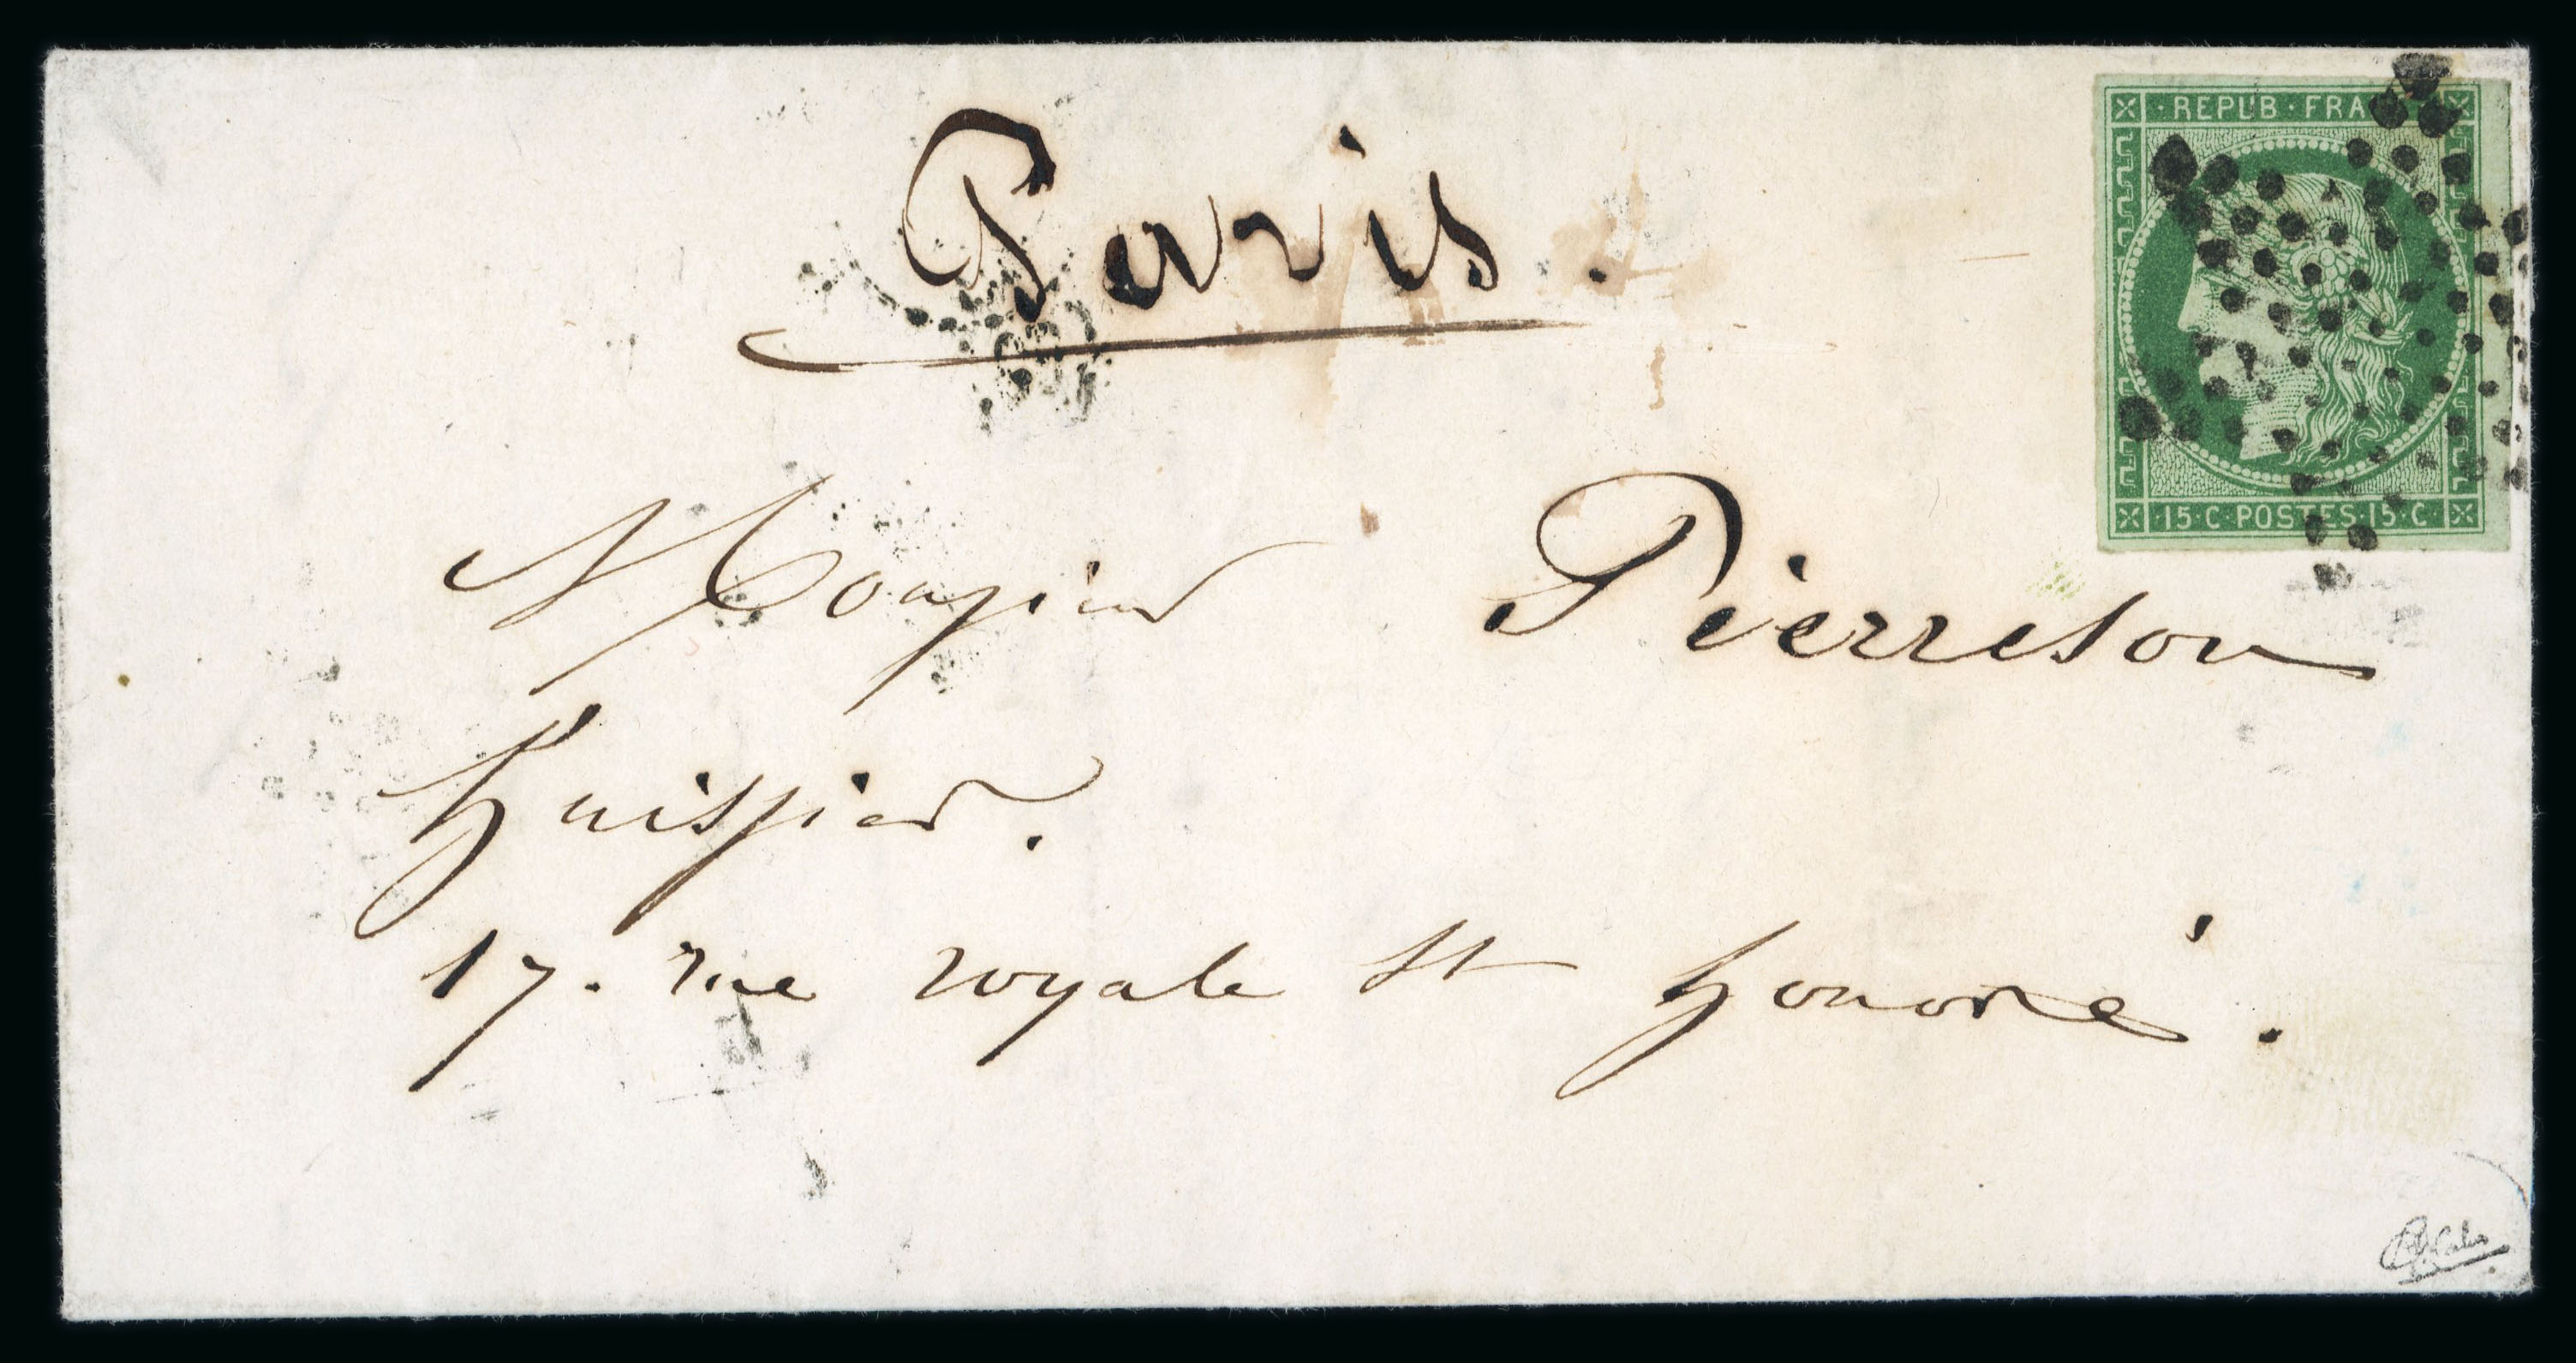 REPUB · FRA
Paris.
15·C·POSTES·15·C
Monsieur Pierreson
huissier.
17. rue royale St honoré.